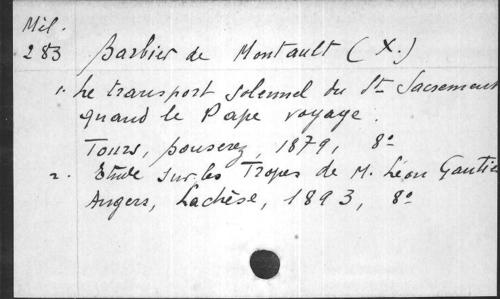 Mél.
283 Barbier de Montault (X.)
1. Le transport solennel du St Sacrement
quand le Pape voyage.
Tours, bouserez, 1879, 8o
2. Etude sur les Tropes de M. Léon Gautier
Angers, Lachèse, 1893, 8o